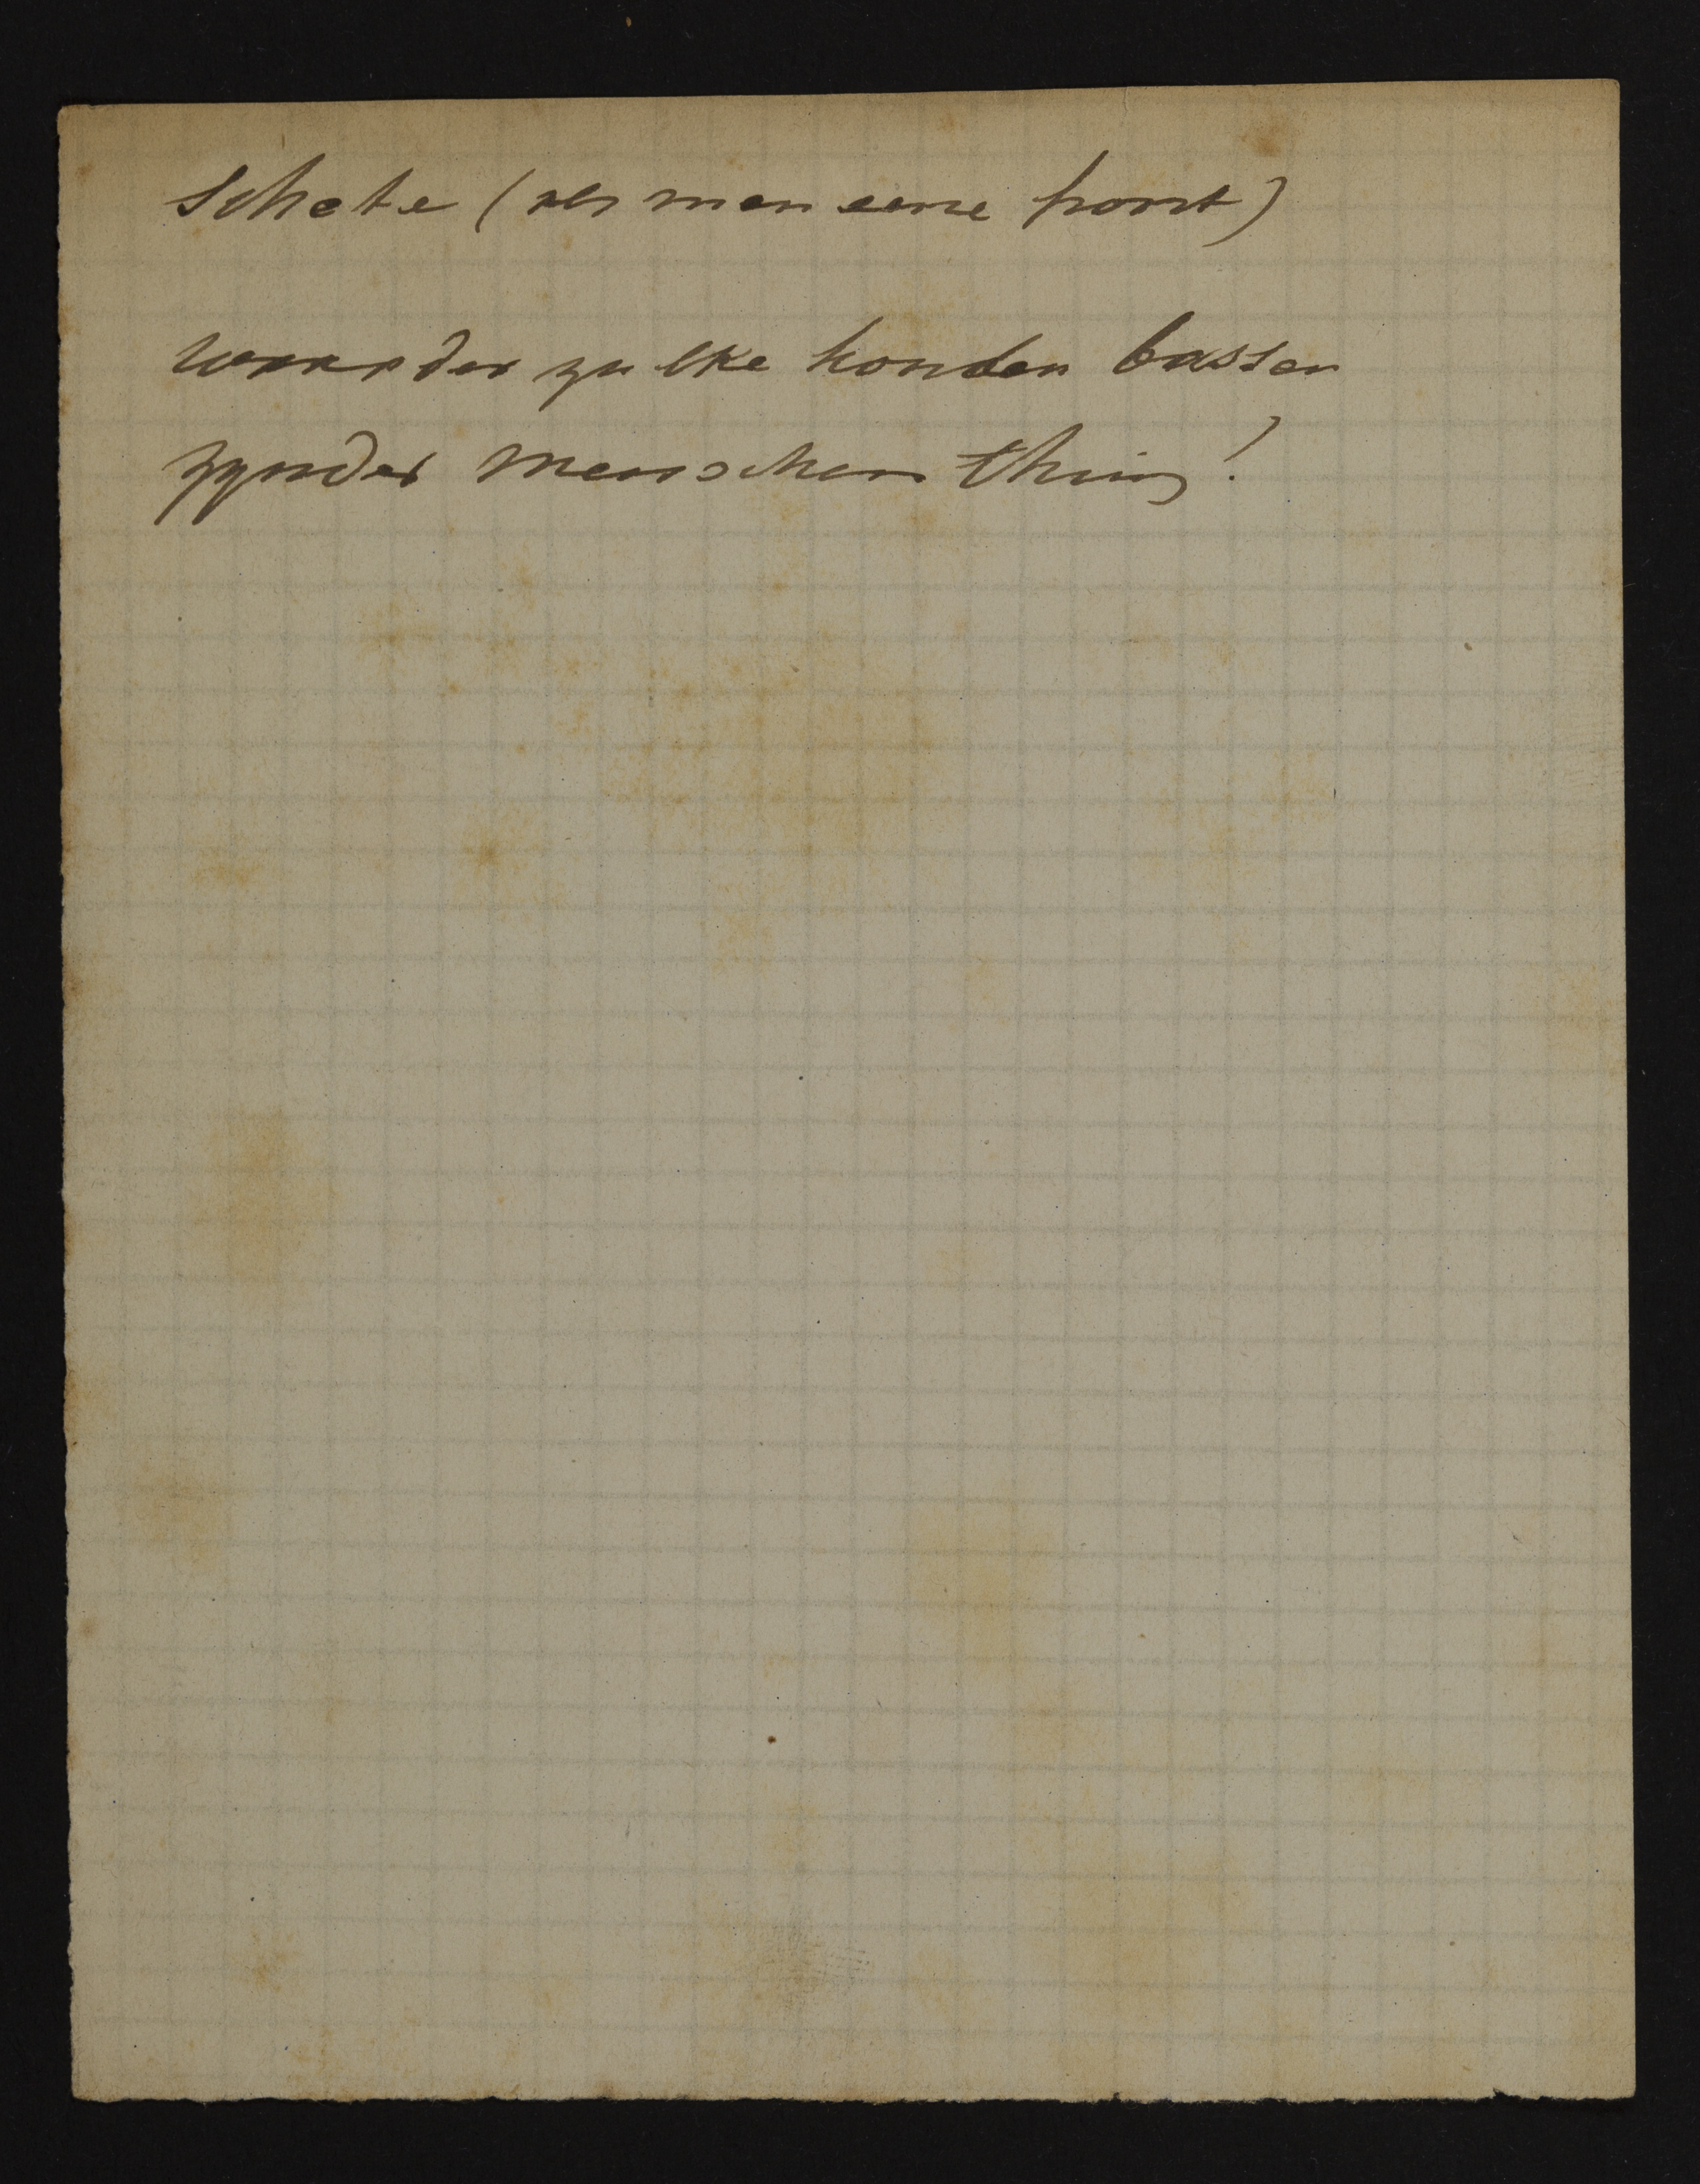 Schete (als man eene hoort)
waar der zulke honden bassen
zynder menschen thuis!